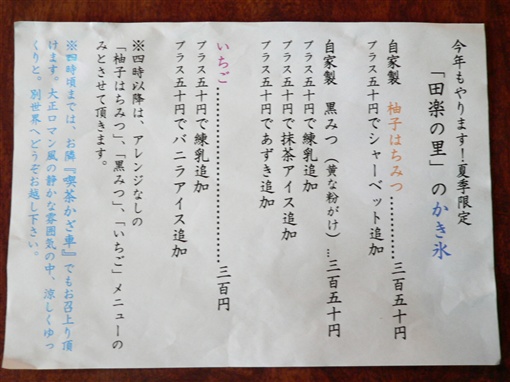 今年もやります！夏季限定
「田楽の里」のかき氷
自家製　柚子はちみつ………………三百五十円
プラス五十円でシャーベット追加
自家製　黒みつ（黄な粉がけ）…三百五十円
プラス五十円で練乳追加
プラス五十円で抹茶アイス追加
プラス五十円であずき追加
いちご………………………………三百円
プラス五十円で練乳追加
プラス五十円でバニラアイス追加
※四時以降は、アレンジなしの
「柚子はちみつ」、「黒みつ」、「いちご」メニューの
みとさせて頂きます。
※四時頃までは、お隣『喫茶かざ車』でもお召上り頂
けます。大正ロマン風の静かな雰囲気の中、涼しくゆっ
くりと。別世界へどうぞお越し下さい。